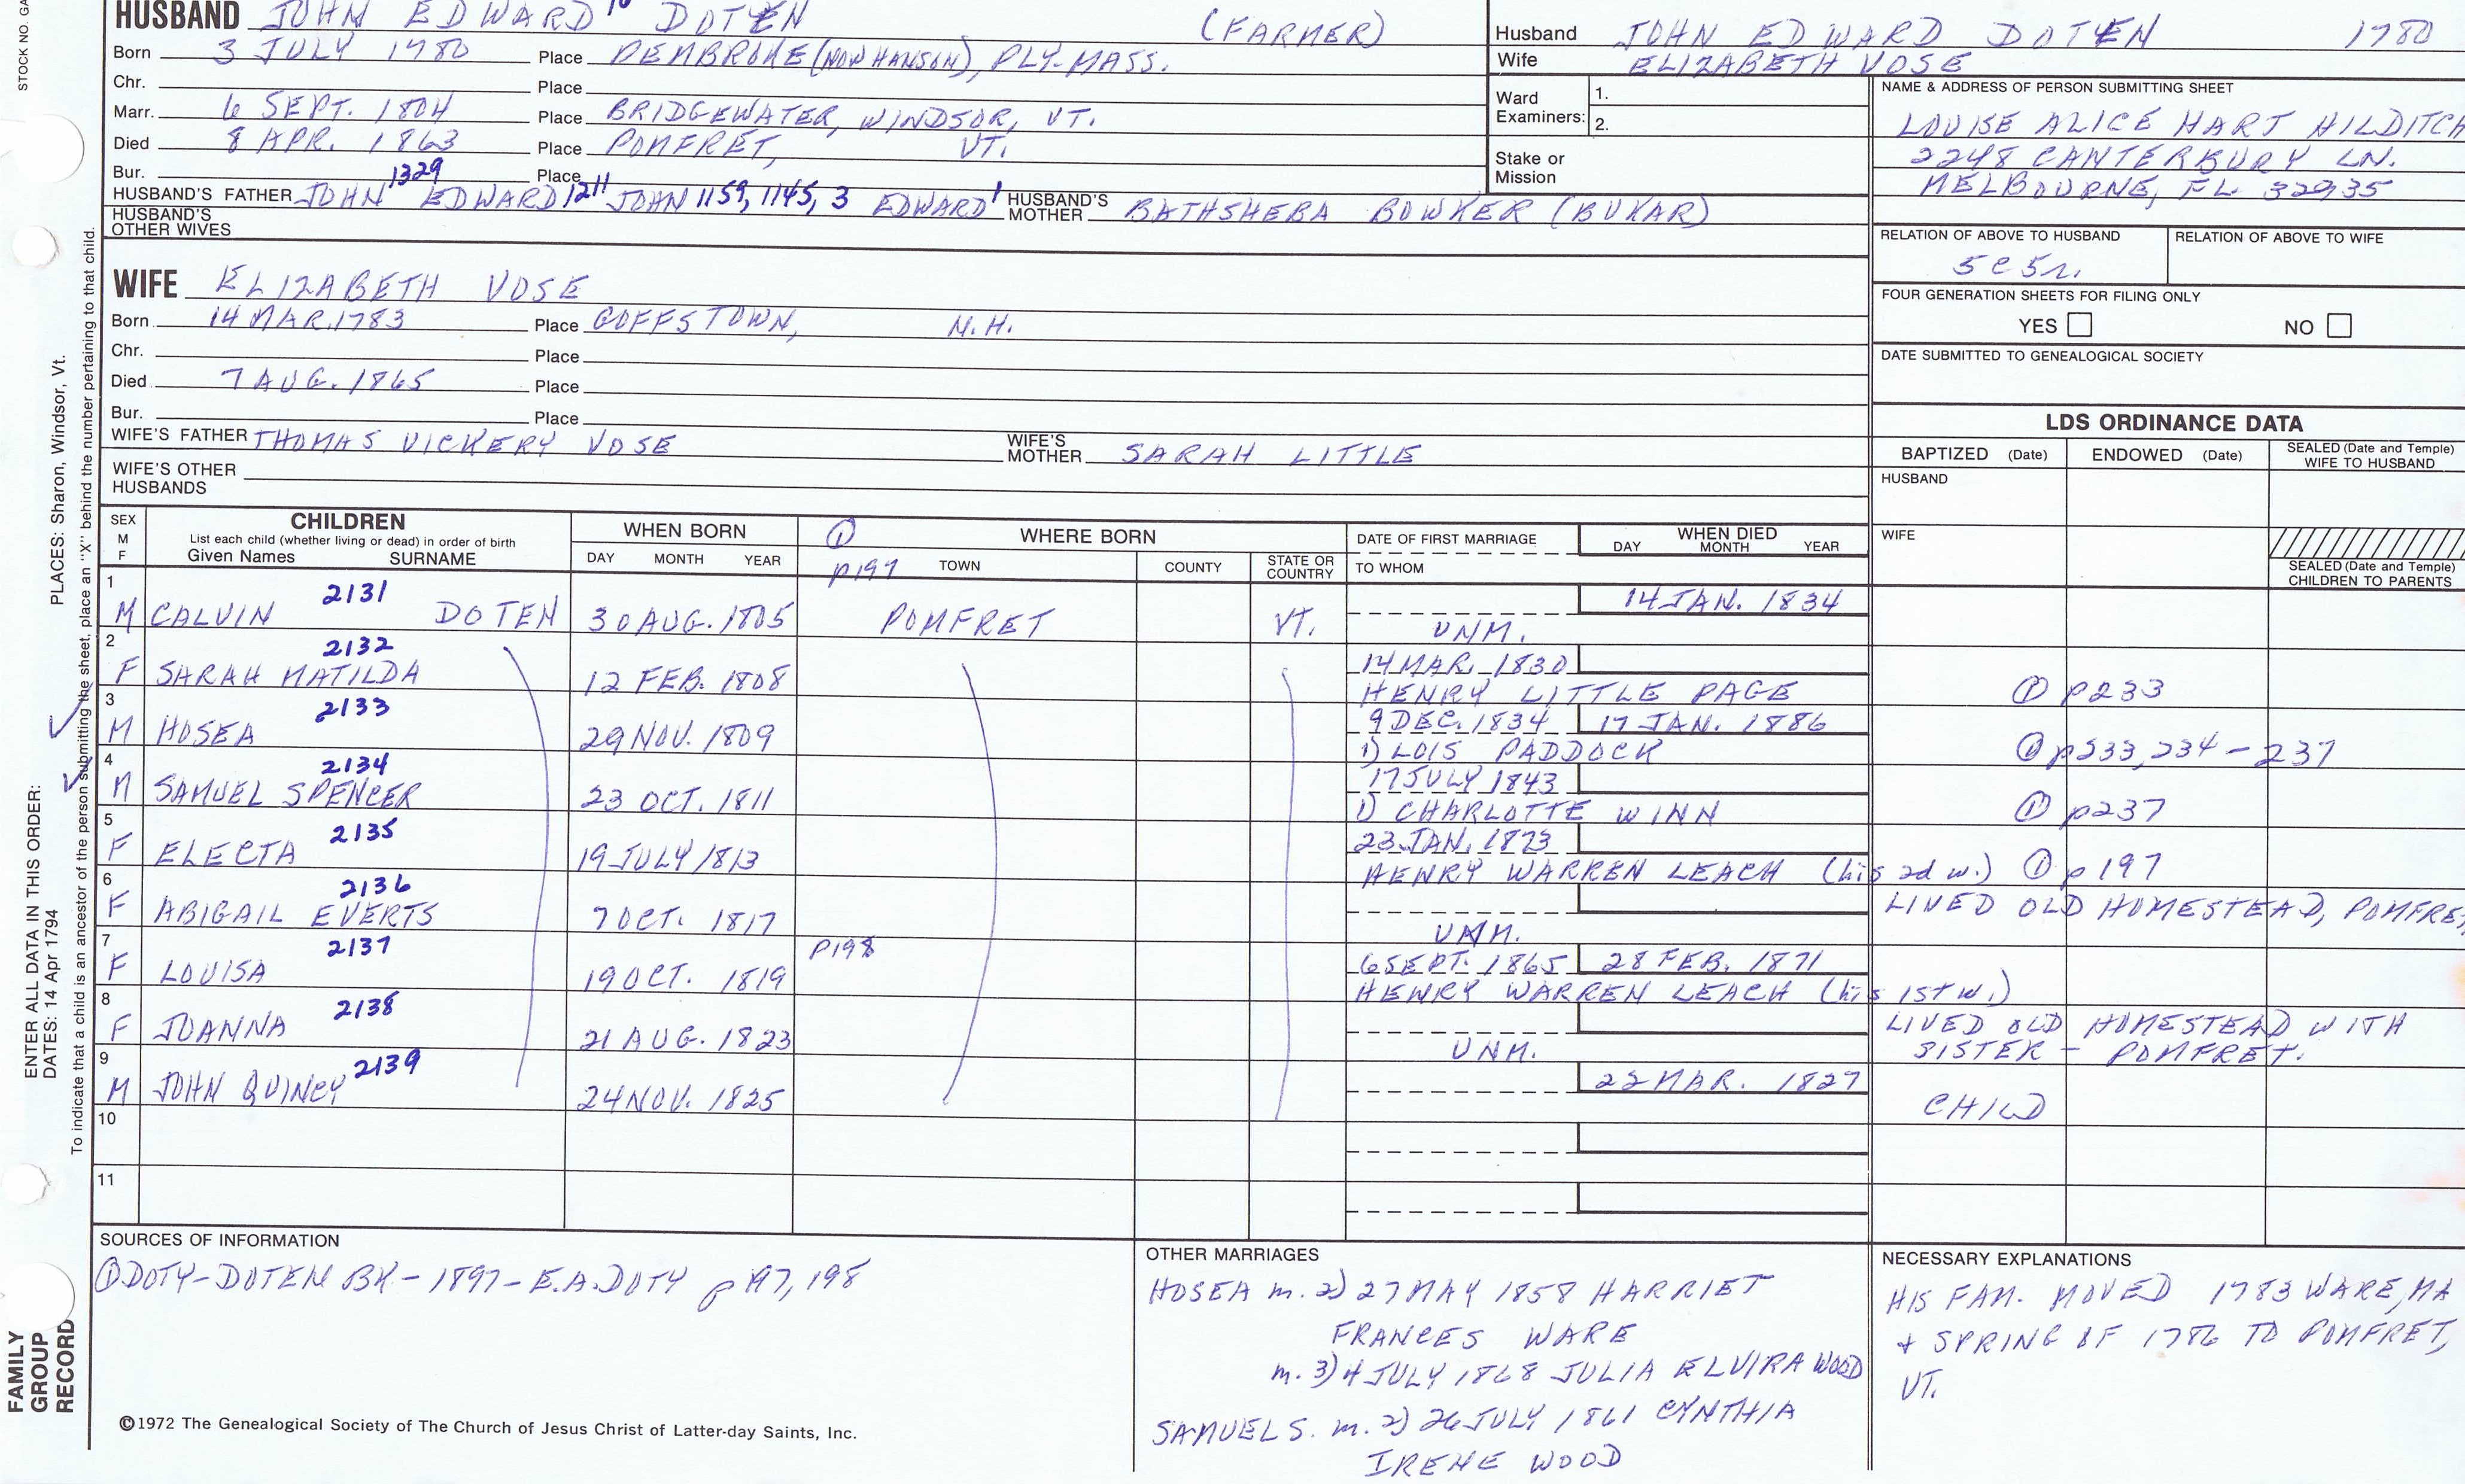 STOCK NO. GA
HUSBAND JOHN EDWARD 10 DOTEN (FARMER)
Born 3 JULY 1780 Place PEMBROKE (NOW HANSON), PLY-MASS.
Chr. Place
Marr. 6 SEPT. 1804 Place BRIDGEWATER, WINDSOR, VT.
Died 8 APR. 1863 Place POMFRET, VT.
Bur. Place
HUSBAND'S FATHER JOHN 1329 EDWARD 1211 JOHN 1159, 1145, 3 EDWARD 1 HUSBAND'S MOTHER BATHSHEBA BOWKER (BUKAR)
HUSBAND'S OTHER WIVES
Husband JOHN EDWARD DOTEN 1780
Wife ELIZABETH VOSE
Ward Examiners: 1.
2.
Stake or Mission
NAME & ADDRESS OF PERSON SUBMITTING SHEET
LOUISE ALICE HART HILDITCH
2248 CANTERBURY LN.
MELBOURNE, FL 32935
RELATION OF ABOVE TO HUSBAND RELATION OF ABOVE TO WIFE
5C 5r.
FOUR GENERATION SHEETS FOR FILING ONLY
YES NO
DATE SUBMITTED TO GENEALOGICAL SOCIETY
WIFE ELIZABETH VOSE
Born 14 MAR. 1783 Place GOFFSTOWN, N.H.
Chr. Place
Died 7 AUG. 1865 Place
Bur. Place
WIFE'S FATHER THOMAS VICKERY VOSE WIFE'S MOTHER SARAH LITTLE
WIFE'S OTHER HUSBANDS
LDS ORDINANCE DATA
BAPTIZED (Date) ENDOWED (Date) SEALED (Date and Temple) WIFE TO HUSBAND
HUSBAND
WIFE
SEALED (Date and Temple) CHILDREN TO PARENTS
SEX M F CHILDREN List each child (whether living or dead) in order of birth Given Names SURNAME
WHEN BORN DAY MONTH YEAR
① p197 WHERE BORN TOWN COUNTY STATE OR COUNTRY
DATE OF FIRST MARRIAGE TO WHOM
WHEN DIED DAY MONTH YEAR
1 M CALVIN 2131 DOTEN 30 AUG. 1805 POMFRET VT. 14 JAN. 1834
UNM.
2 F SARAH MATILDA 2132 12 FEB. 1808 14 MAR. 1830
HENRY LITTLE PAGE ① p233
3 M HOSEA 2133 29 NOV. 1809 9 DEC. 1834 17 JAN. 1886
1) LOIS PADDOCK ① p233, 234-237
4 M SAMUEL SPENCER 2134 23 OCT. 1811 17 JULY 1843
1) CHARLOTTE WINN ① p237
5 F ELECTA 2135 19 JULY 1813 23 JAN. 1873
HENRY WARREN LEACH (his 2d w.) ① p197
6 F ABIGAIL EVERTS 2136 7 OCT. 1817 LIVED OLD HOMESTEAD, POMFRET,
UNM.
7 F LOUISA 2137 19 OCT. 1819 P198 6 SEPT. 1865 28 FEB. 1871
HENRY WARREN LEACH (his 1st w.)
8 F JOANNA 2138 21 AUG. 1823 LIVED OLD HOMESTEAD WITH
UNM. SISTER - POMFRET.
9 M JOHN QUINCY 2139 24 NOV. 1825 22 MAR. 1827
CHILD
10
11
SOURCES OF INFORMATION
① DOTY-DOTEN BK - 1897 - E.A. DOTY p 197, 198
©1972 The Genealogical Society of The Church of Jesus Christ of Latter-day Saints, Inc.
OTHER MARRIAGES
HOSEA m. 2) 27 MAY 1858 HARRIET
FRANCES WARE
m. 3) 4 JULY 1868 JULIA ELVIRA WOOD
SAMUEL S. m. 2) 26 JULY 1861 CYNTHIA
IRENE WOOD
NECESSARY EXPLANATIONS
HIS FAM. MOVED 1783 WARE, MA
+ SPRING OF 1786 TO POMFRET,
VT.
ENTER ALL DATA IN THIS ORDER:
DATES: 14 Apr 1794 PLACES: Sharon, Windsor, Vt.
To indicate that a child is an ancestor of the person submitting the sheet, place an "X" behind the number pertaining to that child.
FAMILY
GROUP
RECORD